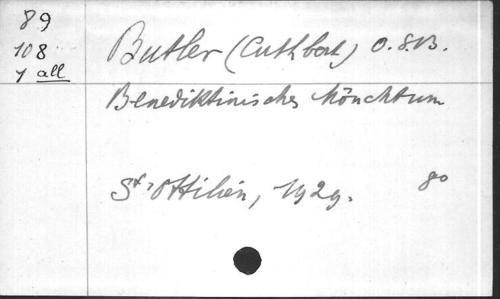 89
108
7 all
Butler (Cuthbert) O.S.B.
Benediktinisches Mönchtum
St. Ottilien, 1929.
8°